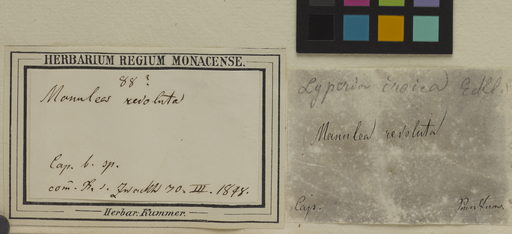 HERBARIUM REGIUM MONACENSE.
88
Manulea revoluta
Cap. b. sp.
com. 30. III. 1848.
Herbar. Kummer.
Lyperia Edl.
Manulea revoluta
Cap.